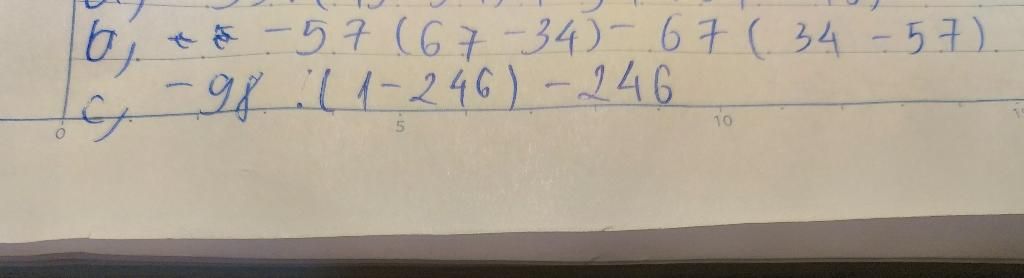 b, -57 (67 - 34) - 67 ( 34 - 57)
c, -98 . ( 1 - 246) - 246
0 5 10